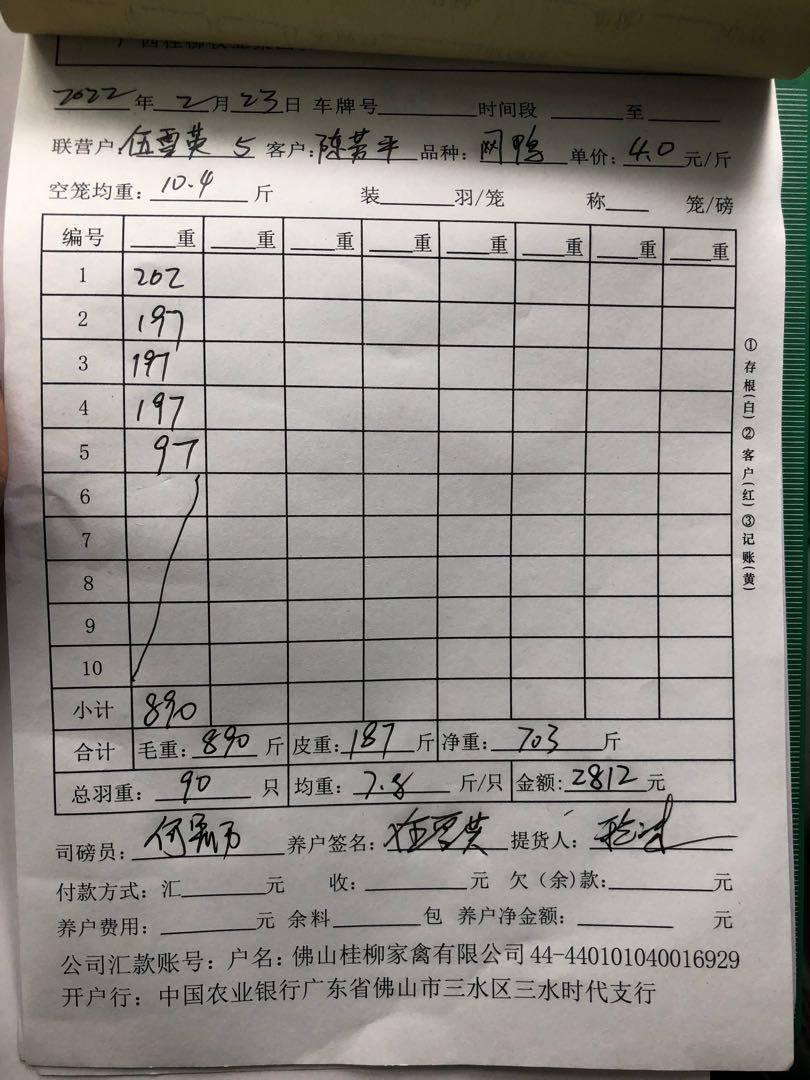 2022年2月23日 车牌号 时间段 至
联营户:伍雪英 5 客户:陈芳平 品种:网鸭 单价:4.0元/斤
空笼均重:10.4斤 装 羽/笼 称 笼/磅
编号 重 重 重 重 重 重 重 重
1 202
2 197
3 197
4 197
5 97
6
7
8
9
10
小计 890
合计 毛重:890斤 皮重:187斤 净重:703斤
总羽重:90只 均重:7.8斤/只 金额:2812元
司磅员: 养户签名:伍雪英 提货人:
付款方式:汇 元 收: 元 欠(余)款: 元
养户费用: 元 余料 包 养户净金额: 元
公司汇款账号:户名:佛山桂柳家禽有限公司44-440101040016929
开户行:中国农业银行广东省佛山市三水区三水时代支行
①存根(白)②客户(红)③记账(黄)